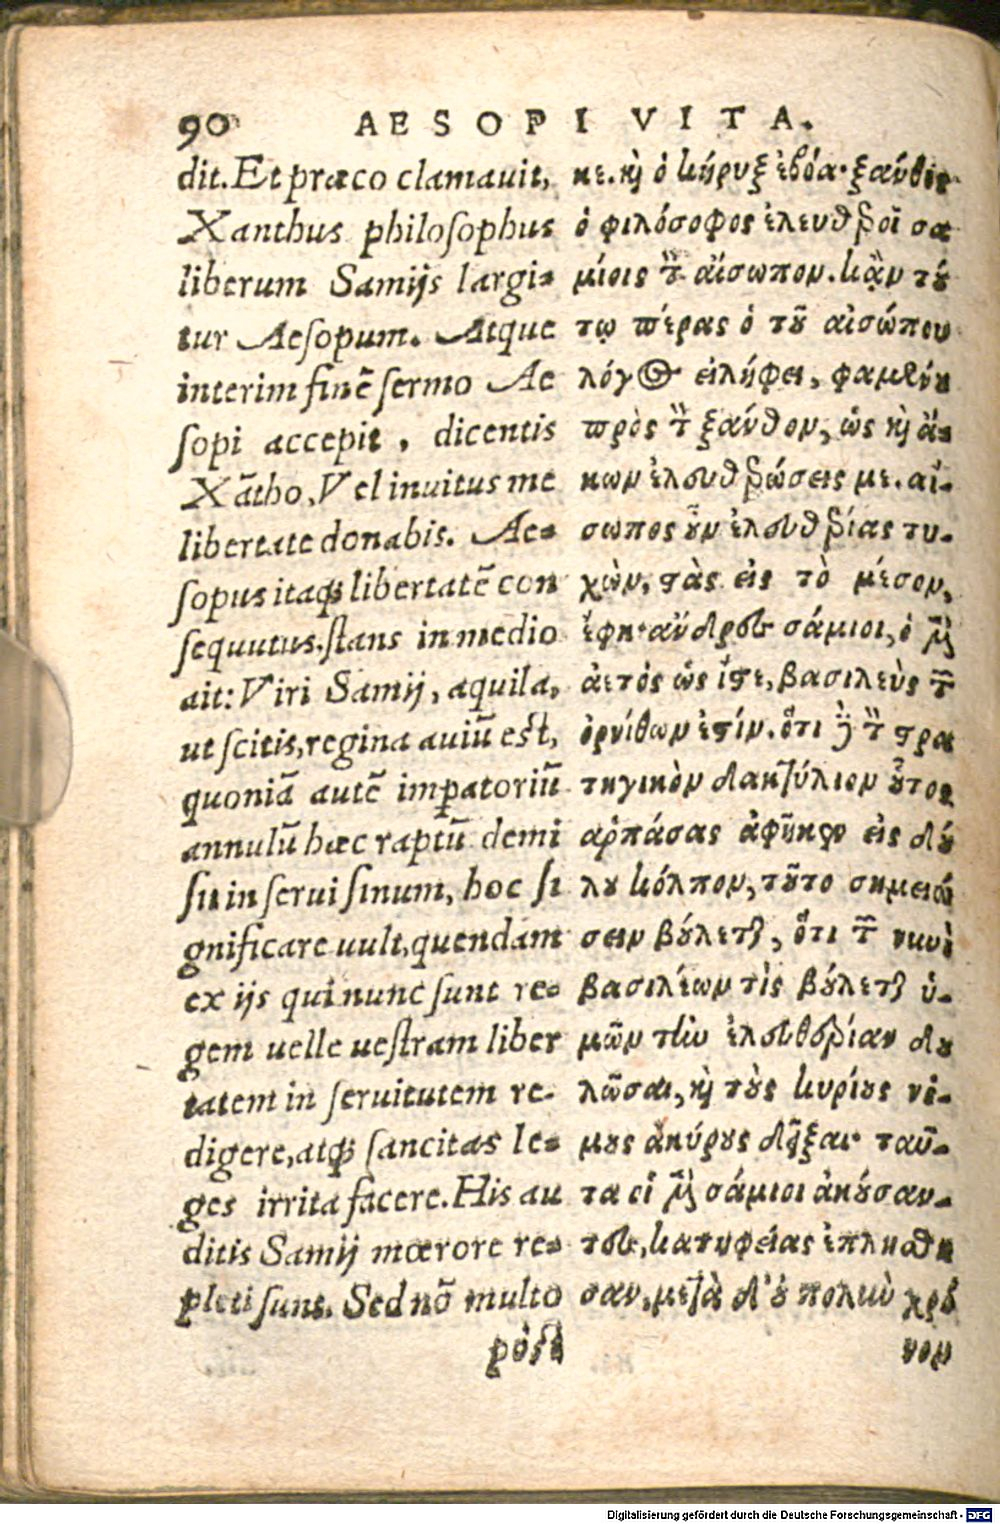 90 AESOPI VITA.
dit. Et præco clamauit,
Xanthus philosophus
liberum Samijs largi-
tur Aesopum. Atque
interim finē sermo Ae
sopi accepit, dicentis
Xātho, Vel inuitus me
libertate donabis. Ae-
sopus itaq; libertatē con
sequutus. stans in medio
ait: Viri Samij, aquila,
ut scitis, regina auiū est,
quoniā autē imperatoriū
annulū hæc raptū demi
sit in serui sinum, hoc si
gnificare uult, quendam
ex ijs qui nunc sunt re-
gem uelle uestram liber
tatem in seruitutem re-
digere, atq; sancitas le-
ges irrita facere. His au
ditis Samij mœrore re-
pleti sunt. Sed nō multo
post
κε. κὶ ὁ κήρυξ ἐβόα· ξαύθος
ὁ φιλόσοφος ἐλευθεροῖ σα
μίοις τ αἴσωπον. κᾂν τού
τῳ πέρας ὁ τοῦ αἰσώπου
λόγος εἰλήφει, φαμένου
πρὸς τ ξαύθον, ὡς κὶ ἄ-
κων ἐλευθερώσεις με. αἴ-
σωπος οὖν ἐλευθερίας τυ-
χὼν, στὰς εἰς τὸ μέσον,
ἔφη· ἄνδρες σάμιοι, ὁ μὲν
ἀετὸς ὡς ἴστε, βασιλεὺς τ
ὀρνίθων ἐστίν. ὅτι δὲ τ στρα
τηγικὸν δακτύλιον οὗτος
ἁρπάσας ἀφῆκεν εἰς δού
λου κόλπον, τοῦτο σημειώ
σειν βούλεται, ὅτι τ νυνὶ
βασιλέων τὶς βούλεται ὑ-
μῶν τὴν ἐλευθερίαν δου
λῶσαι, κὶ τοὺς κυρίους νό-
μους ἀκύρους δεῖξαι· ταῦ-
τα οἱ μὲν σάμιοι ἀκούσαν-
τες, κατηφείας ἐπλήσθη
σαν. μετὰ δ' οὐ πολὺν χρό
νον
Digitalisierung gefördert durch die Deutsche Forschungsgemeinschaft - DFG